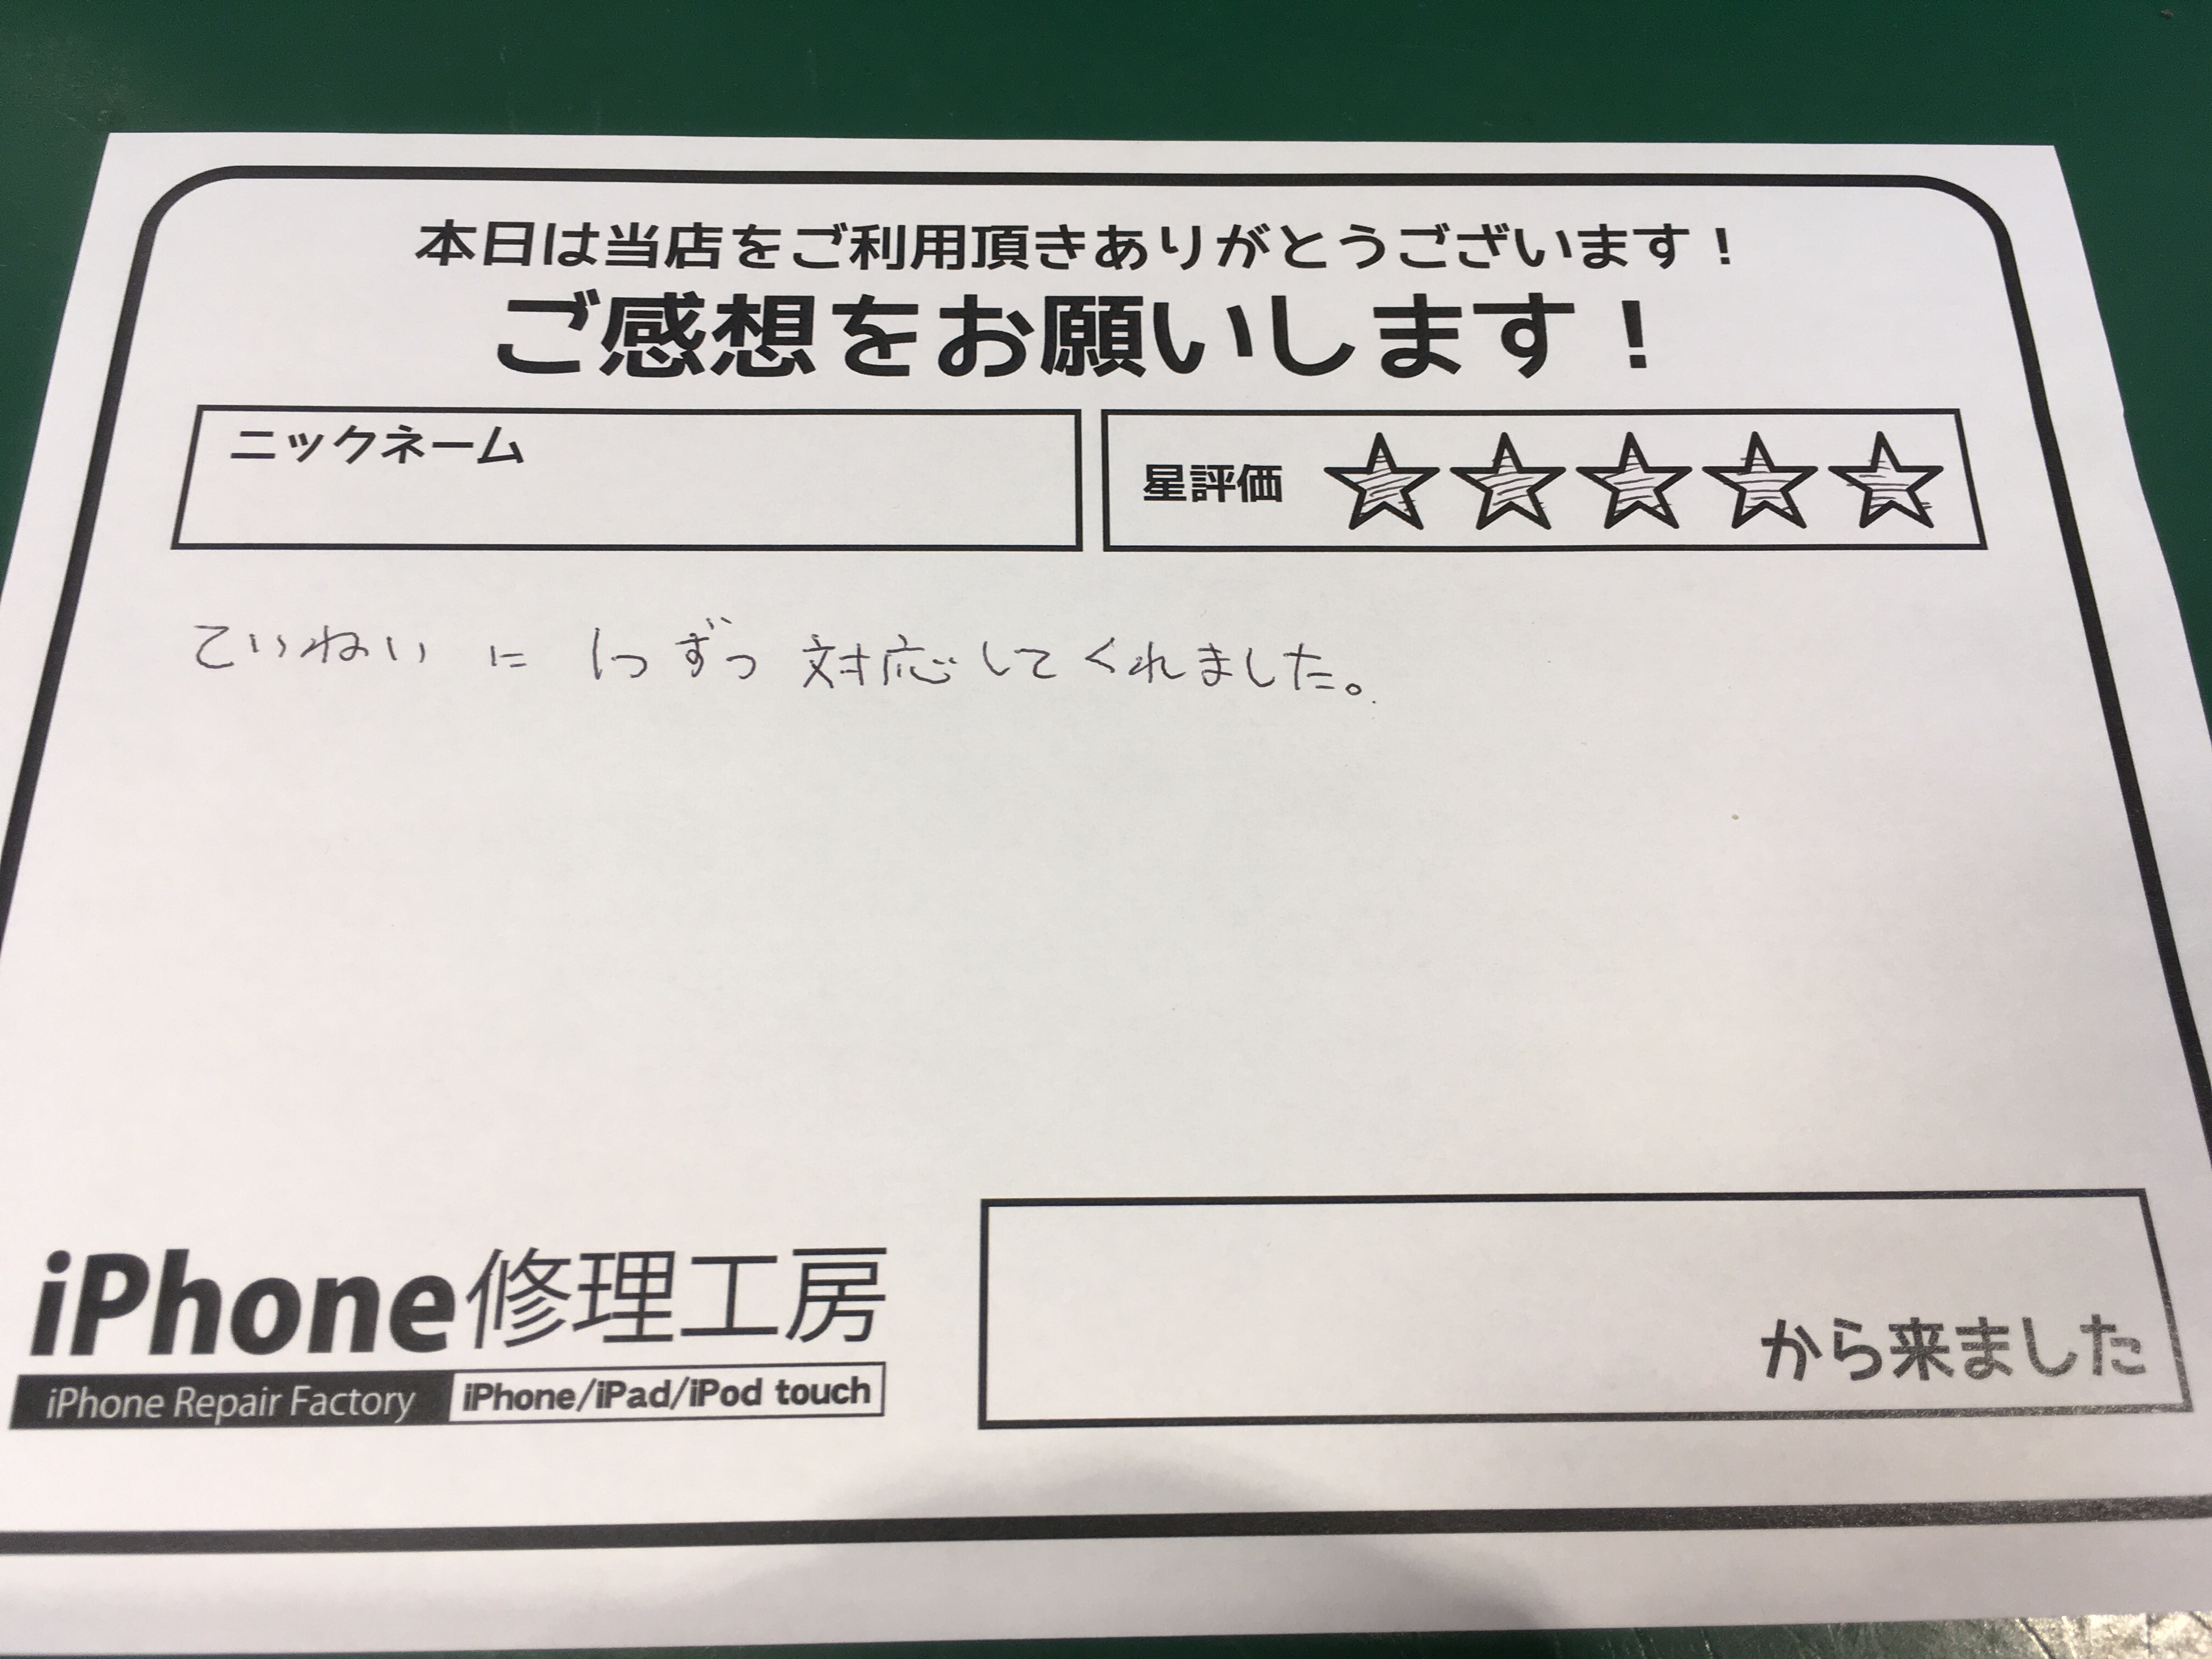 本日は当店をご利用頂きありがとうございます！
ご感想をお願いします！
ニックネーム
星評価 ☆☆☆☆☆
ていねいに 1つずつ 対応してくれました。
iPhone修理工房
iPhone Repair Factory iPhone/iPad/iPod touch
から来ました